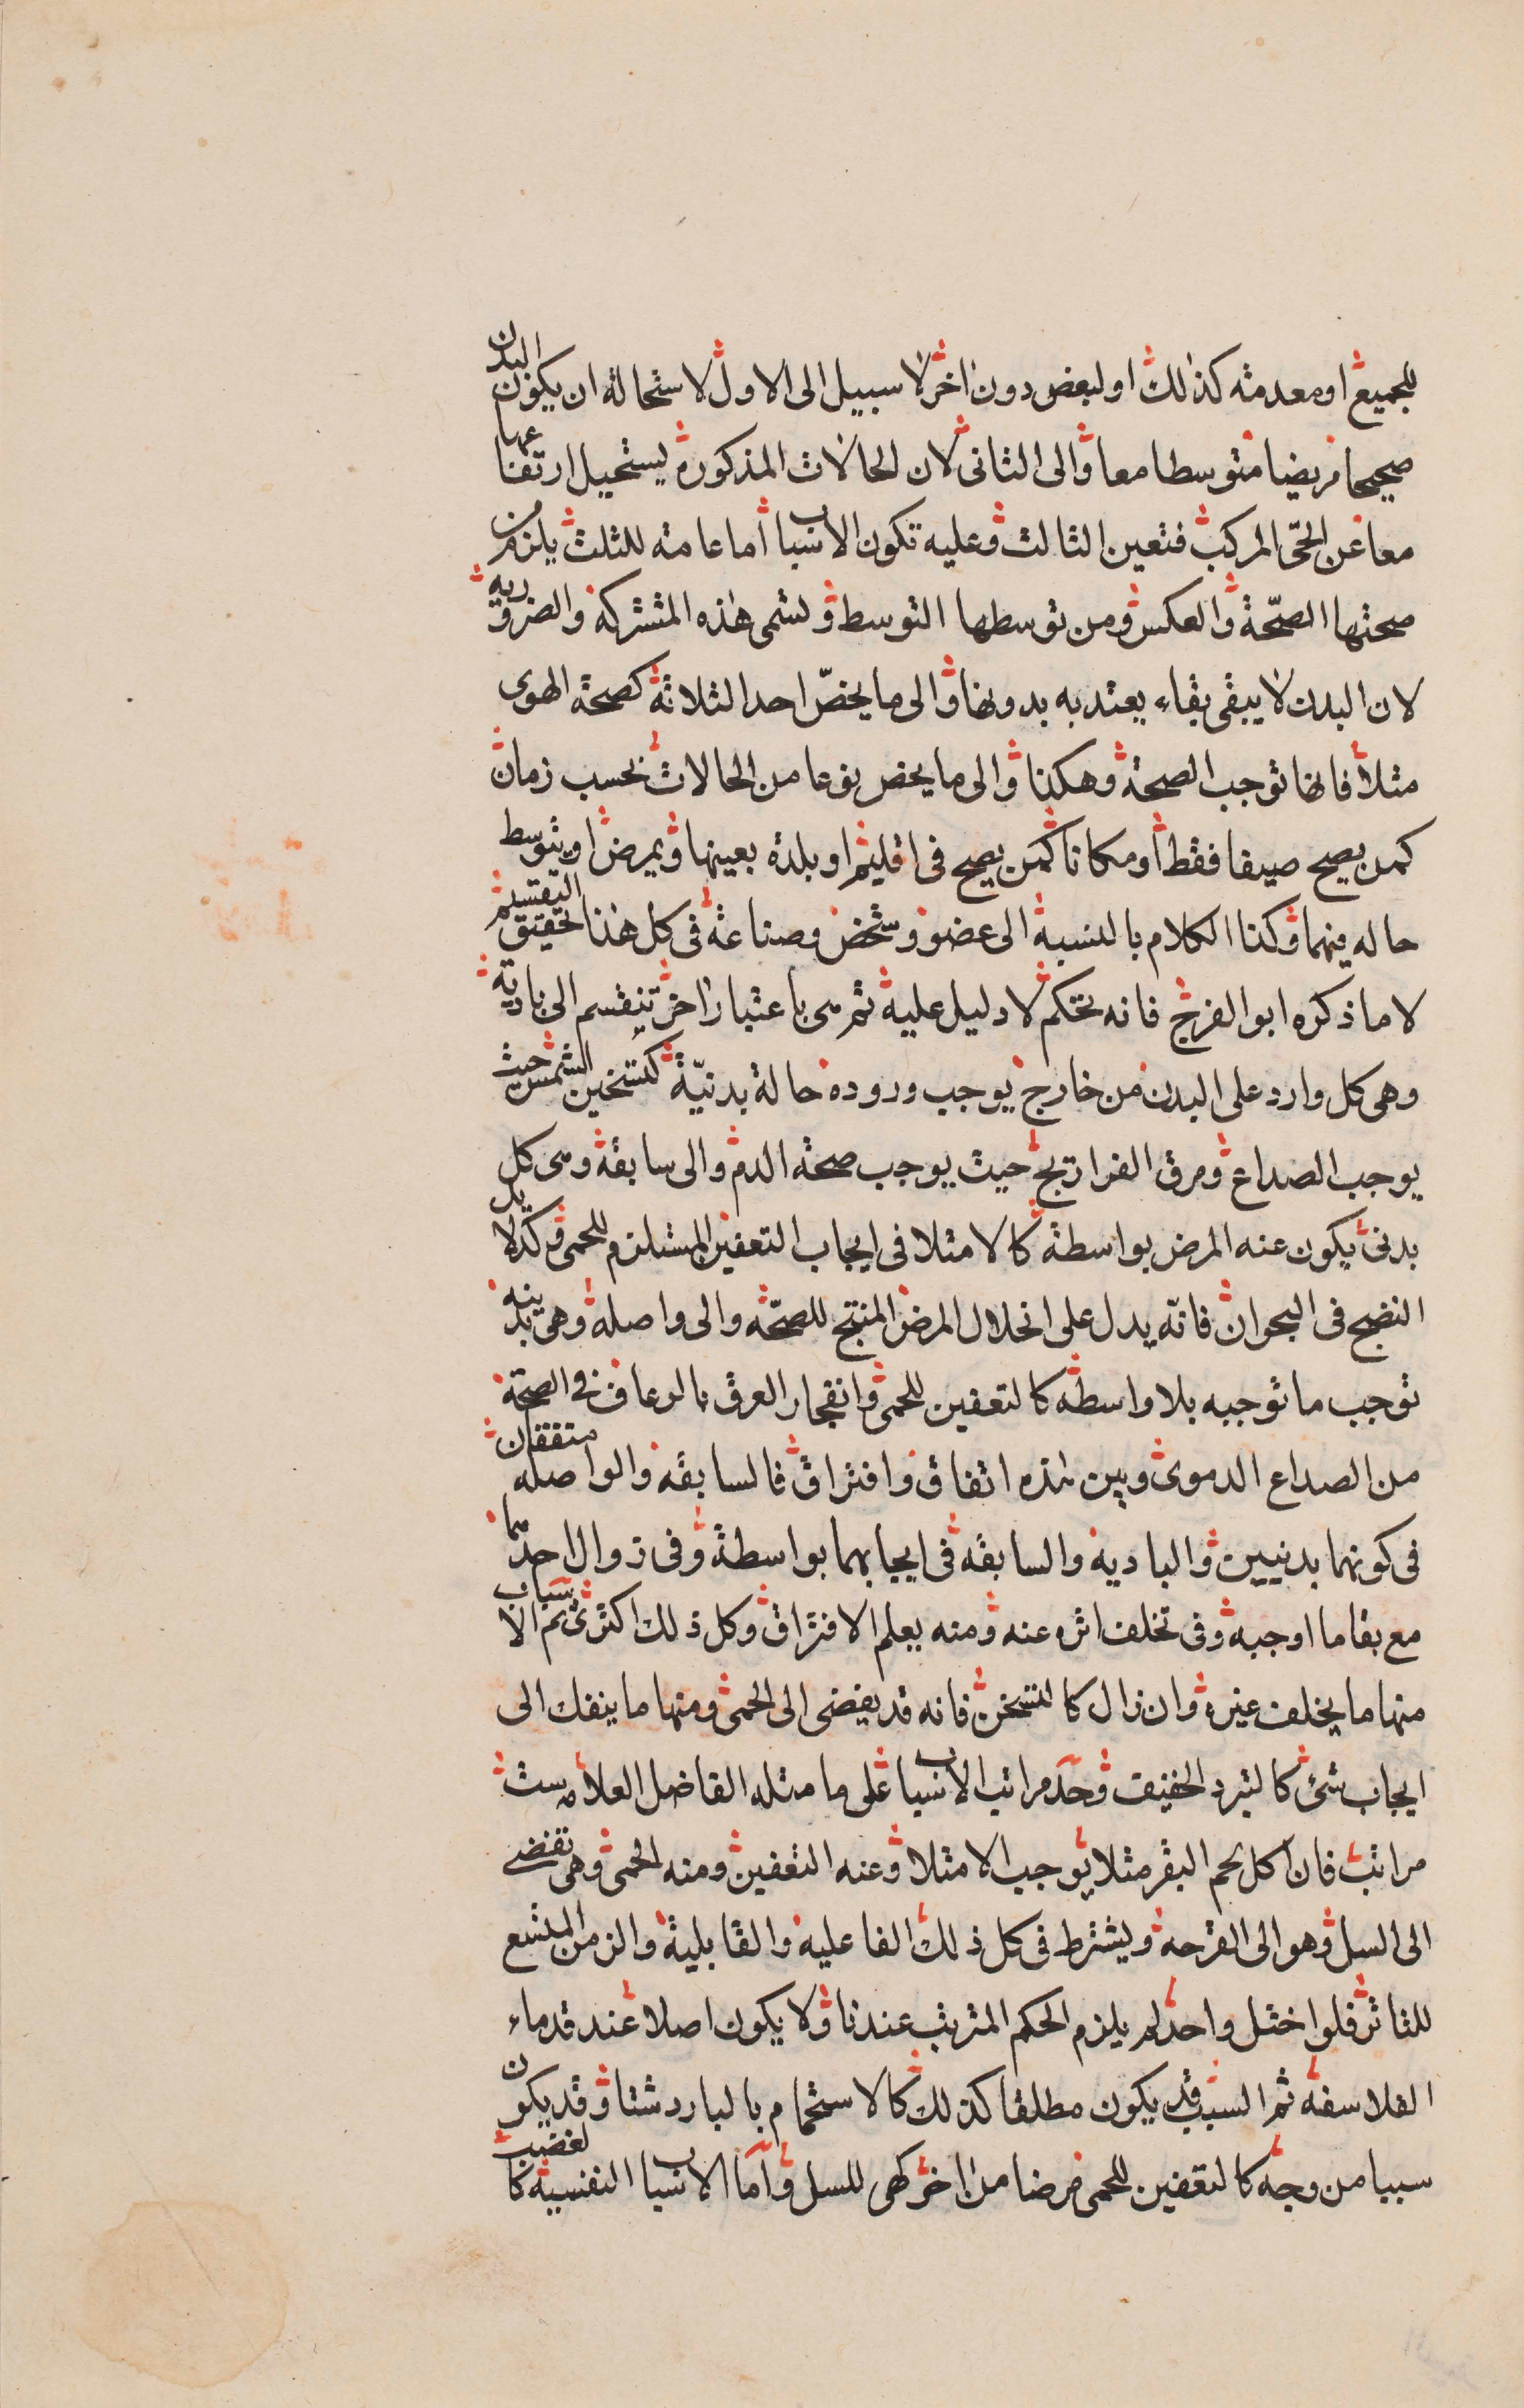 للجميع او معدمته كذلك او لبعض دون اخر لا سبيل الى الاول لاستحالة ان يكون البدن
صحيحا مريضا متوسطا معا والى الثانى لان الحالات المذكوره يستحيل ارتفاعها
معا عن الحى المركب فتعين الثالث وعليه تكون الاسباب اما عامته للثلث يلزم من
صحتها الصحّة والعكس ومن توسطها التوسط وتسمى هذه المشتركة والضروريه
لان البدن لا يبقى بقاء يعتد به بدونها والى ما يخصّ احد الثلاثة كصحة الهوى
مثلا فانها توجب الصحة وهكذا والى ما يخص نوعا من الحالات بحسب زمان
كمن يصح صيفا فقط او مكانا كمن يصح فى اقليم او بلدة بعينها ويمرض او يتوسط
حاله فيهما وكذا الكلام بالنسبة الى عضو وشخص وصناعة فى كل هذا تحقيق التقسيم
لا ما ذكره ابو الفرج فانه تحكم لا دليل عليه ثم هى باعتبار اخر تنقسم الى باديه
وهى كل وارد على البدن من خارج يوجب وروده حالة بدنيّة كتسخين الشمس حيث
يوجب الصداع ومرق الفراريج حيث يوجب صحة الدم والى سابقة وهى كل
بدنى يكون عنه المرض بواسطة كالامتلا فى ايجاب التعفين المستلزم للحمى وكدلايل
النضج فى البحران فانّه يدل على انحلال المرض المنتج للصحّة والى واصلة وهى بدينه
توجب ما توجبه بلا واسطة كالتعفين للحمى وانفجار العرق بالرعاف فى الصحّة
من الصداع الدموى وبين هذه اتفاق وافتراق فالسابقة والواصله متفقان
فى كونهما بدنيين والباديه والسابقه فى ايجابهما بواسطة وفى زوال احدّهما
مع بقا ما اوجبه وفى تخلف اثره عنه ومنه يعلم الافتراق وكل ذلك اكثرى ثم الاسباب
منها ما يخلف غيره وان زال كالتسخن فانه قد يفضى الى الحمى ومنها ما ينفك الى
ايجاب شئ كالتبرد الخفيف وحد مراتب الاسباب على ما مثله الفاضل العلامه ست
مراتب فان اكل لحم البقر مثلا يوجب الامتلا وعنه التعفين ومنه الحمى وهى تفضى
الى السل وهو الى القرحه ويشترط فى كل ذلك الفاعليه والقابلية والزمن المتسع
للتاثر فلو اختل واحد لم يلزم الحكم المترتب عندنا ولا يكون اصلا عند قدماء
الفلاسفه ثم السبب قد يكون مطلقا كذلك كالاستحمام بالبارد شتا وقد يكون
سببا من وجه كالتعفين للحمى مرضا من اخر كهى للسل واما الاسباب النفسية كالغضب